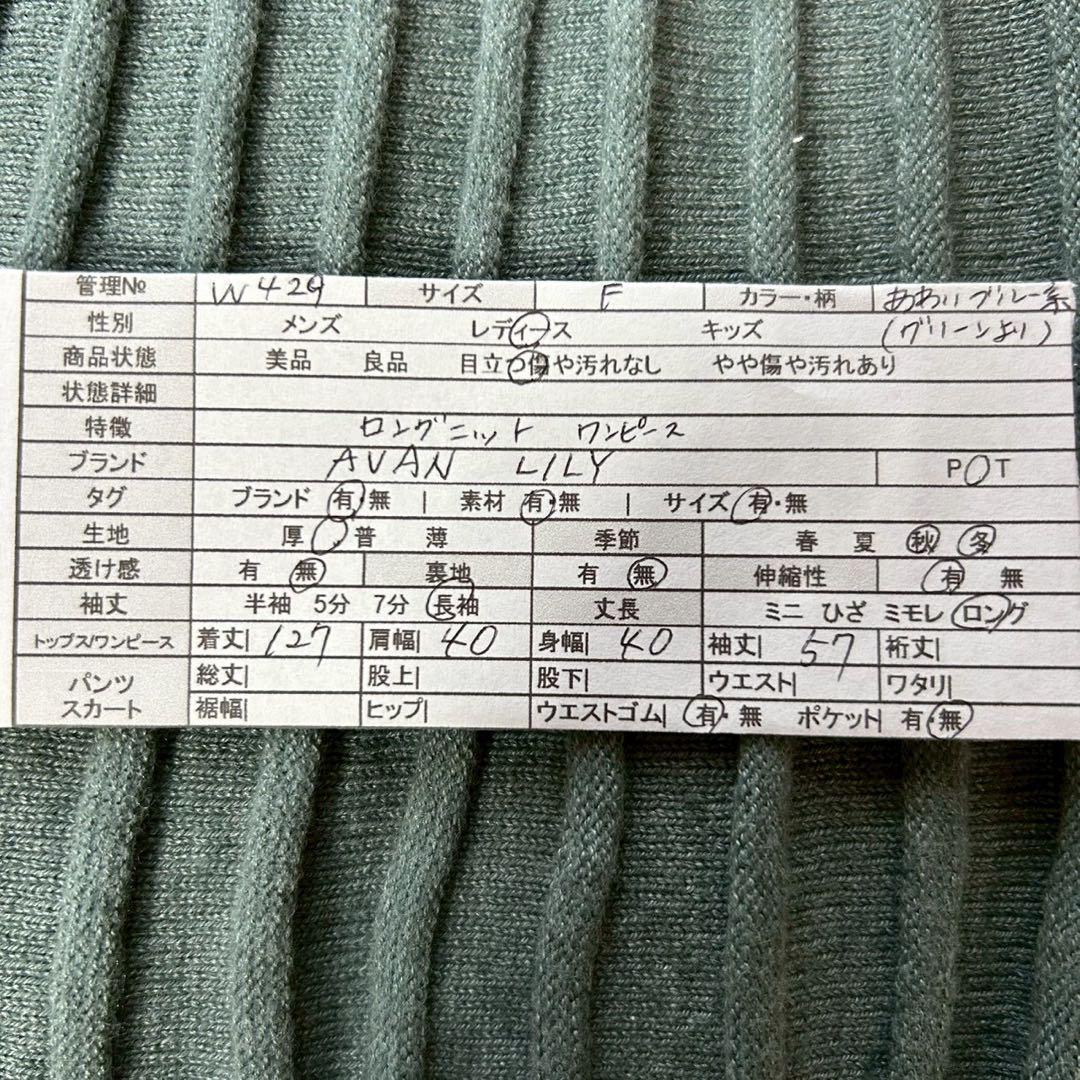 管理№ W429 サイズ F カラー・柄 あわいブルー系
性別 メンズ レディース キッズ (グリーンより)
商品状態 美品 良品 目立つ傷や汚れなし やや傷や汚れあり
状態詳細
特徴 ロングニット ワンピース
ブランド AVAN LILY POT
タグ ブランド 有・無 | 素材 有・無 | サイズ 有・無
生地 厚 普 薄 季節 春 夏 秋 冬
透け感 有 無 裏地 有 無 伸縮性 有 無
袖丈 半袖 5分 7分 長袖 丈長 ミニ ひざ ミモレ ロング
トップス/ワンピース 着丈| 127 肩幅| 40 身幅| 40 袖丈| 57 裄丈|
パンツ スカート 総丈| 股上| 股下| ウエスト| ワタリ|
裾幅| ヒップ| ウエストゴム| 有・無 ポケット| 有・無